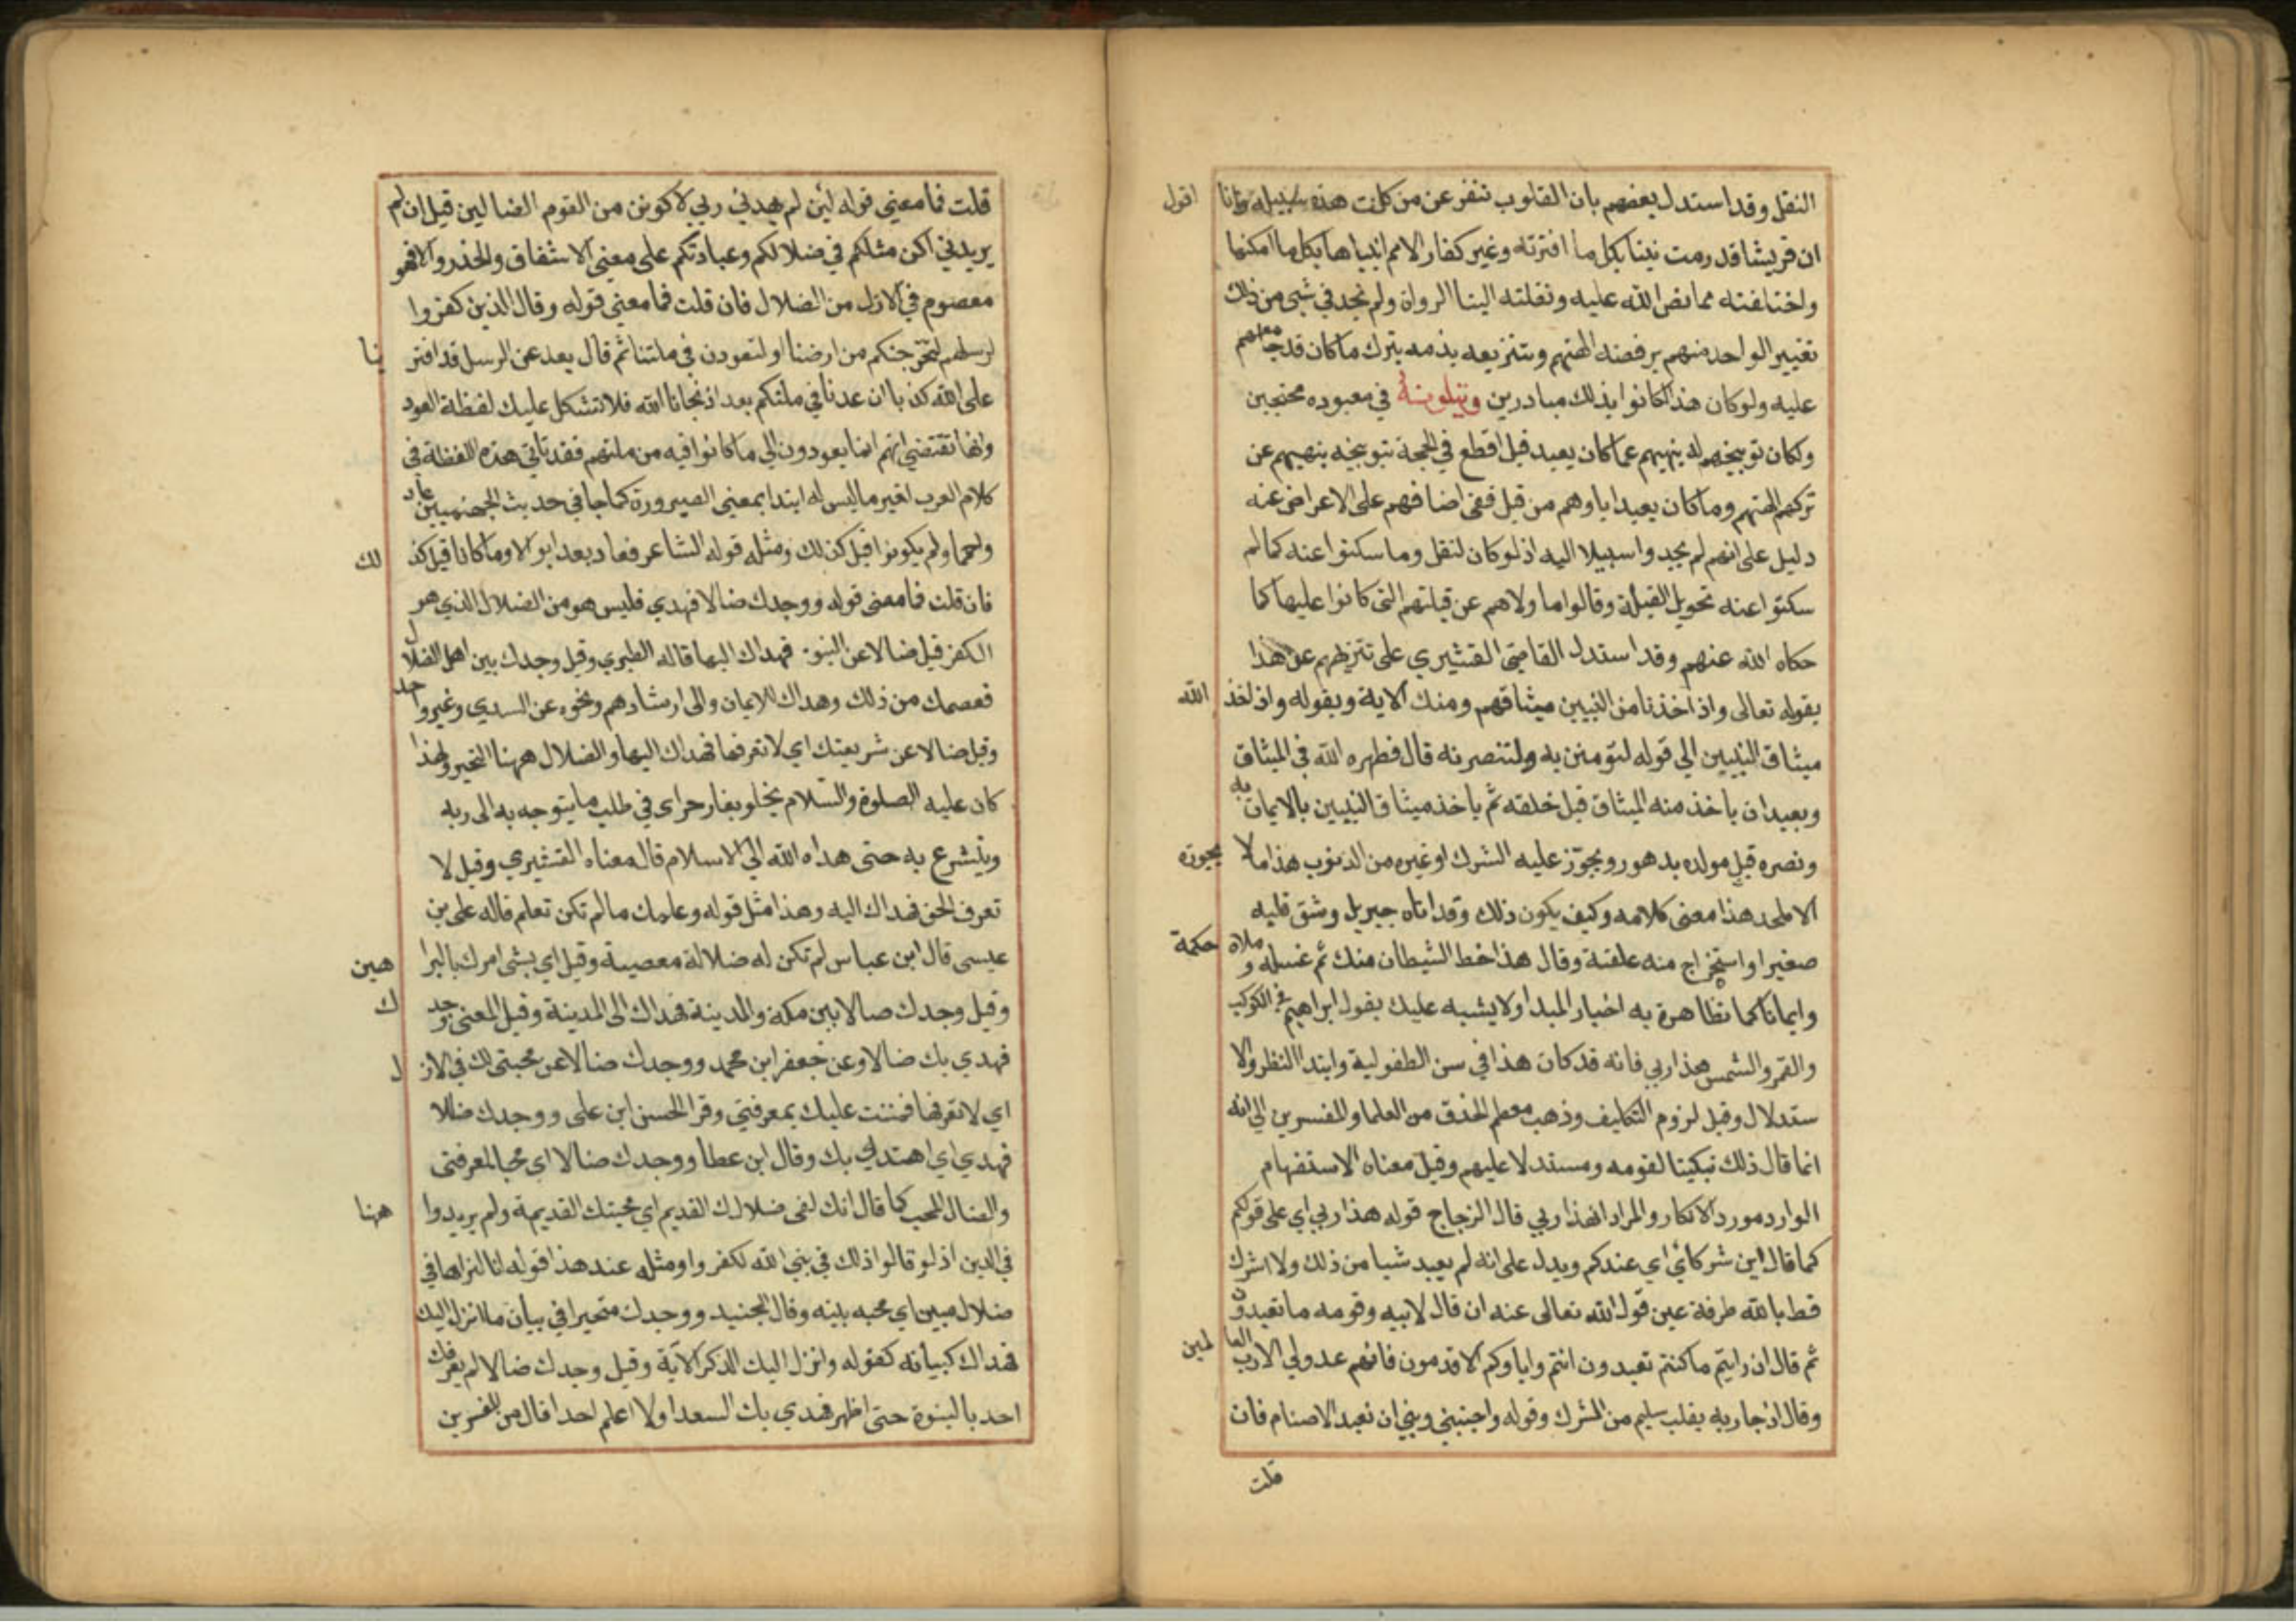 النقل وقد استدل بعضهم بان القلوب تنفر عن من كانت هذه سبيله وانا اقول
ان قريشا قد رمت نبينا بكل ما افترته وغير كفار الامم انبياها بكل ما امكنها
واختلفته مما نص الله عليه ونقلته الينا الرواة ولم نجد في شى من ذلك
تغيير الواحد منهم برفضه الهتهم وبتنزيعه بذمه بترك ما كان قد جامعهم
عليه ولو كان هذا لكانوا بذلك مبادرين وبتلونه في معبوده محتجين
ولكان توبيخهم له بنهيهم عما كان يعبد قبل اقطع في الحجة بتوبيخه بنهيهم عن
تركهم الهتهم وما كان يعبد اباوهم من قبل ففى اضافهم على الاعراض عنه
دليل على انهم لم يجدوا سبيلا اليه اذ لو كان لنقل وما سكتوا عنه كما لم
سكتوا عنه تحويل القبلة وقالوا ما ولاهم عن قبلتهم التى كانوا عليها كما
حكاه الله عنهم وقد استدل القاضى القشيري على تنزيههم عن هذا
بقوله تعالى واذ اخذنا من النبيين ميثاقهم ومنك الاية وبقوله واذ اخذ الله
ميثاق النبيين الي قوله لتومنن به ولتنصرنه قال فطهره الله في الميثاق
وبعيد ان ياخذ منه الميثاق قبل خلقه ثم ياخذ ميثاق النبيين بالايمان به
ونصره قبل مولده بدهور ويجوّز عليه الشرك او غيره من الذنوب هذا ما لا يجوزه
الا ملحد هذا معنى كلامه وكيف يكون ذلك وقد اتاه جبريل وشق قلبه
صغيرا واستخرج منه علقة وقال هذا خط الشيطان منك ثم غسله وملاه حكمة
وايمانا كما تظاهرة به اخبار المبدا ولا يشبه عليك بقول ابراهيم في الكوكب
والقمر والشمس هذا ربي فانه قد كان هذا في سن الطفولية وابتدا النظر والا
ستدلال وقبل لزوم التكليف وذهب معظم الحذق من العلما والمفسرين الى انه
انما قال ذلك تبكيتا لقومه ومستدلا عليهم وقيل معناه الاستفهام
الوارد مورد الانكار والمراد افهذا ربي قال الزجاج قوله هذا ربي اي على قولكم
كما قال اين شركائي اي عندكم ويدل على انه لم يعبد شيا من ذلك ولا اشرك
قط بالله طرفة عين قول الله تعالى عنه ان قال لابيه وقومه ما تعبدون
ثم قال ان رايتم ما كنتم تعبدون انتم واباوكم الاقدمون فانهم عدو لي الا رب العا لمين
وقال اذ جا ربه بقلب سليم من الشرك وقوله واجنبني وبني ان نعبد الاصنام فان
قلت
قلت فما معني قوله لئن لم يهدني ربي لاكونن من القوم الضالين قيل ان لم
يريدني اكن مثلكم في ضلالكم وعبادتكم على معني الاشفاق والحذر والا فهو
معصوم في الازل من الضلال فان قلت فما معني قوله وقال الذين كفروا
لرسلهم لنخرجنكم من ارضنا او لتعودن في ملتنا ثم قال بعد عن الرسل قد افتر ينا
على الله كذبا ان عدنا في ملتكم بعد اذ نجانا الله فلا تشكل عليك لفظة العود
وانها تقتضي انهم انما يعودون الي ما كانوا فيه من ملتهم فقد تاتي هذه اللفظة فى
كلام العرب لغير ما ليس له ابتدا بمعني الصيرورة كما جا في حديث الجهنميين عاد
واحمما ولم يكونوا قبل كذلك ومثله قوله الشاعر فعاد بعد ابوالا وما كانا قبل كذ لك
فان قلت فما معنى قوله ووجدك ضالا فهدي فليس هو من الضلال الذي هو
الكفر قيل ضالا عن النبوة فهداك اليها قاله الطبري وقيل وجدك بين اهل الضلال
فعصمك من ذلك وهداك للايمان والى ارشادهم ونحوه عن السدي وغير واحد
وقيل ضالا عن شريعتك اي لا تعرفها فهداك اليها والضلال ههنا التحير ولهذا
كان عليه الصلوة والسلام يخلو بغار حراى في طلب ما يتوجه به الى ربه
ويتشرع به حتى هداه الله الي الاسلام قال معناه القشيري وقيل لا
تعرف الحق فهداك اليه وهذا مثل قوله وعلمك ما لم تكن تعلم قاله على بن
عيسى قال ابن عباس لم تكن له ضلالة معصية وقيل اي بشى امرك بالبرا هين
وقيل وجدك ضالا بين مكة والمدينة فهداك الى المدينة وقيل المعنى وجد ك
فهدي بك ضالا وعن جعفر ابن محمد ووجدك ضالا عن محبتى لك في الاز ل
اي لا تعرفها فمننت عليك بمعرفتي وقرا الحسن ابن على ووجدك ضالا
فهدي اي اهتدي بك وقال ابن عطا ووجدك ضالا اي محبا لمعرفتى
والضال المحب كما قال انك لفى ضلالك القديم اي محبتك القديمة ولم يريدوا ههنا
في الدين اذ لو قالوا ذلك في نبي الله لكفروا ومثله عند هذا قوله انا لنراها في
ضلال مبين اي محبه بينه وقال الجنيد ووجدك متحيرا في بيان ما انزل اليك
فهداك كبيانه كقوله وانزل اليك الذكر الآية وقيل وجدك ضالا لم يعرفك
احد بالنبوة حتى اظهر فهدي بك السعدا ولا اعلم احدا قال من المفسرين